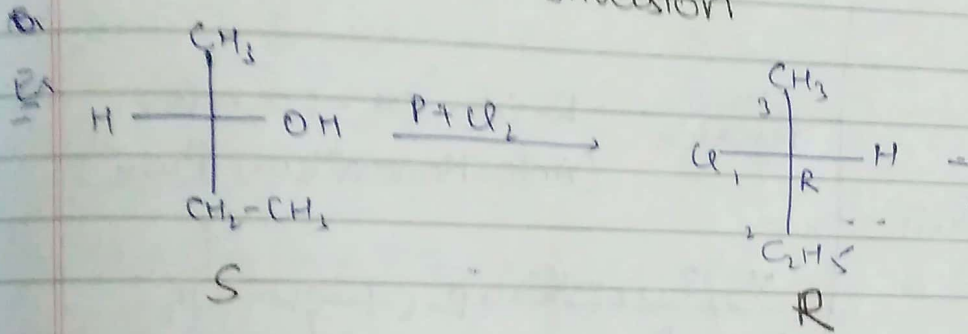 CH3
H OH P+Cl2
CH2-CH3
S
CH3
3
Cl 1 H
R
2 C2H5
R